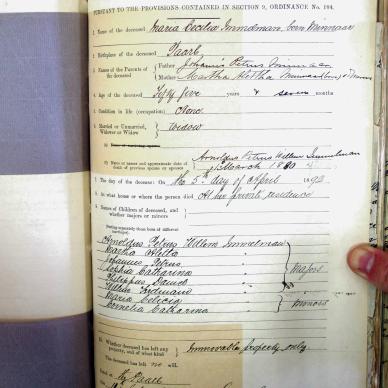 PURSUANT TO THE PROVISIONS CONTAINED IN SECTION 9, ORDINANCE No. 104.
1. Name of the deceased Maria Cecilia Immelman, born Minnaar
2. Birthplace of the deceased Paarl
3. Names of the Parents of the deceased
Father Johannis Petrus Minnaar
Mother Martha Aletta
4. Age of the deceased Fifty five years & seven months
5. Condition in life (occupation) None
6. Married or Unmarried, Widower or Widow Widow
(b) Name or names and approximate date of death of previous spouse or spouses
Arnoldus Petrus Willem Immelman
March 1890
7. The day of the decease: On the 5th day of April 1892
8. At what house or where the person died At her private residence
9. Names of Children of deceased, and whether majors or minors
(stating separately those born of different marriages)
Arnoldus Petrus Willem Immelman
Martha Aletta "
Johannes Petrus "
Sophia Catharina "
Philippus David "
Willem Ferdinand "
Majors
Maria Celicia "
Cornelia Catharina "
Minors
10. Whether deceased has left any property, and of what kind Immovable property only.
The deceased has left no will.
Dated at the Paarl